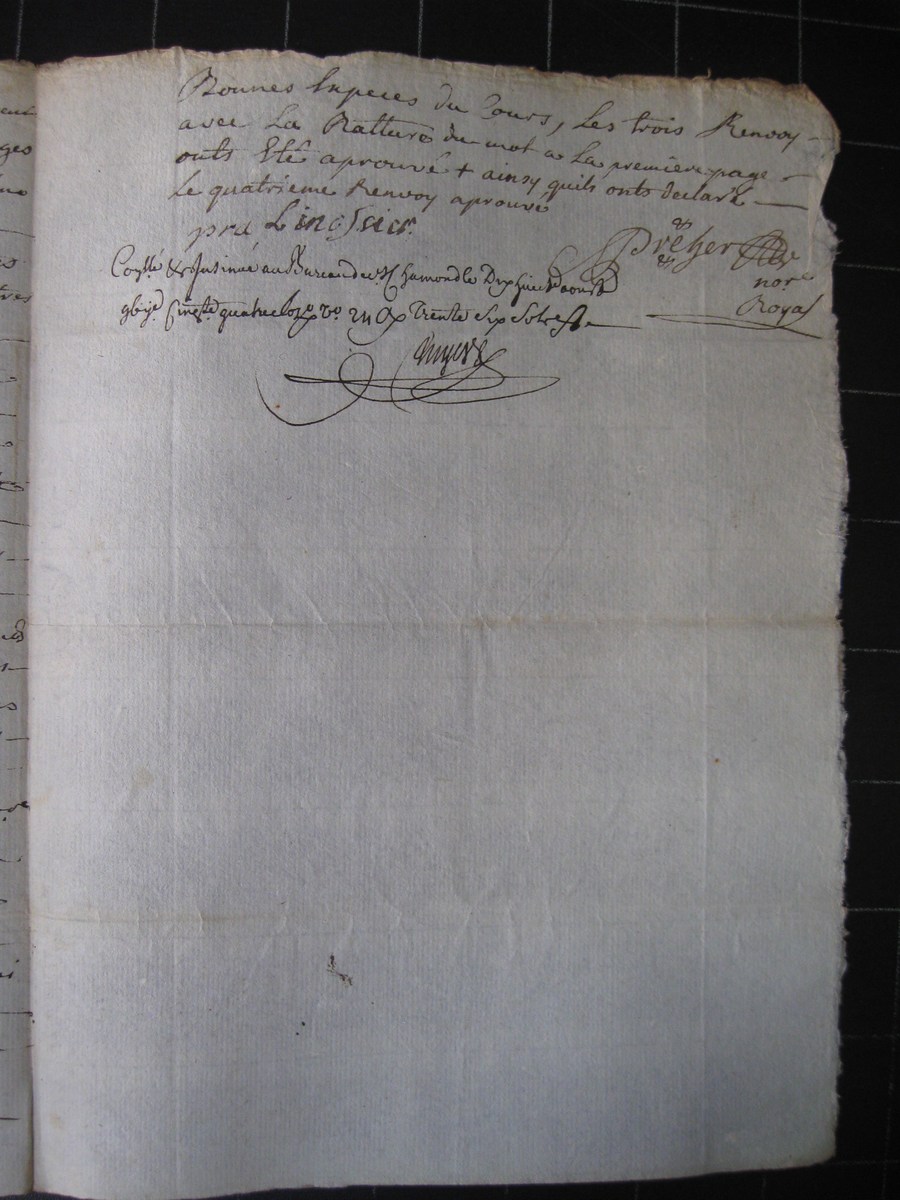 Bonnes Especes du Cours, Les trois Renvoy
avec La Ratture du mot a La premiere page
onts Eté aprouvé + ainsy quils onts declaré
Le quatrieme Renvoy aprouvé
pra Linossier
Preher
nore
Royal
& Insinué au Bureau de St Chamond le Dix huit aoust
quatre Trente Six Sols